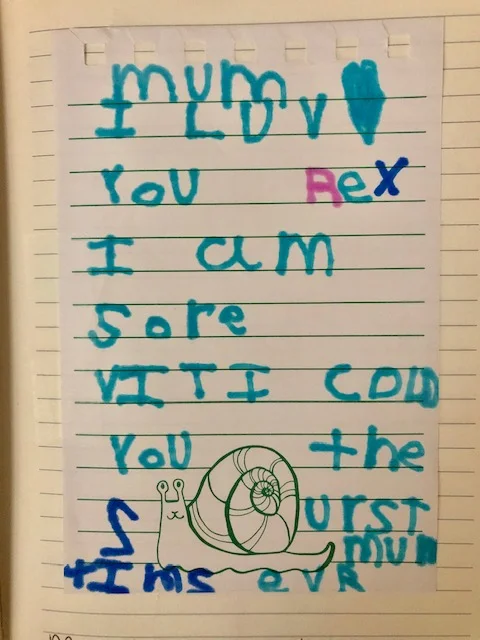 mum
I LUV
YoU ReX
I am
Sore
VITI COLD
YoU the
S urst
mum
tIms evR